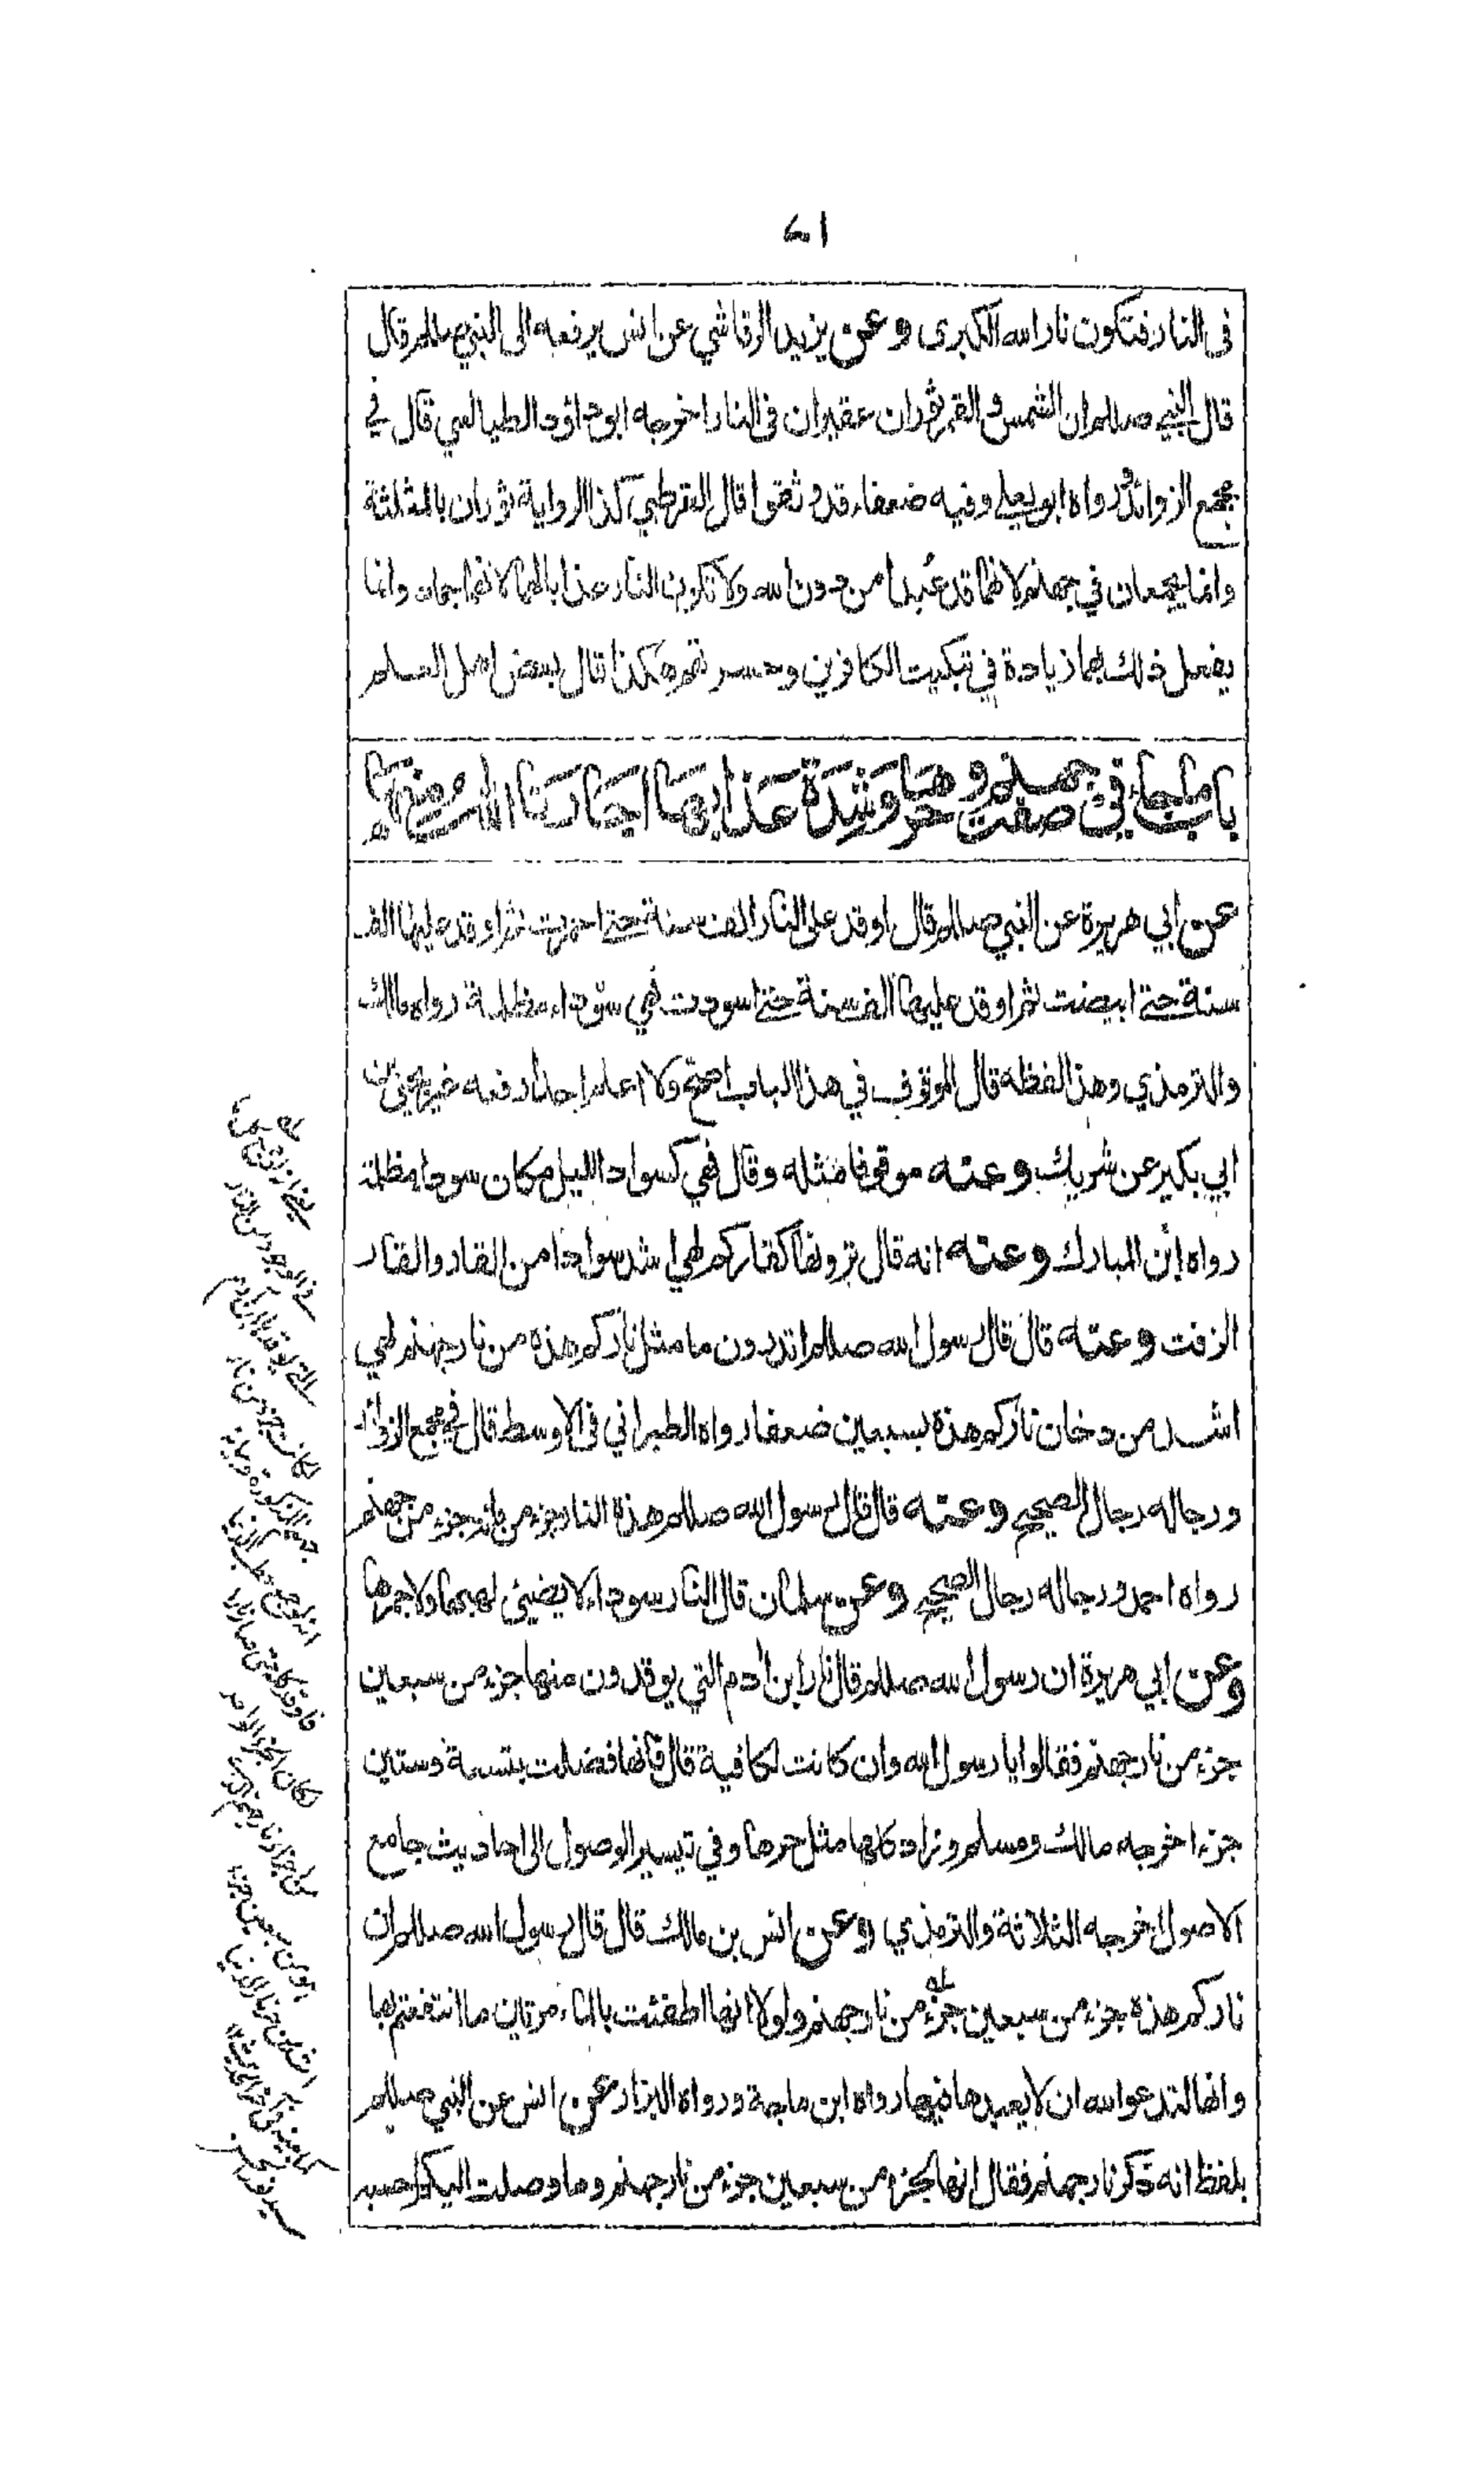 ٧١
فى النار فتكون نار الله الكبرى وعن يزيد الرقاشي عن انس يرفعه الى النبي صللم قال
قال النبي صللم ان الشمس والقمر ثوران عقيران فى النار اخرجه ابو داؤد الطيالسي قال في
مجمع الزوائد رواه ابو يعلى وفيه ضعفاء قد وثقوا قال القرطبي كذا الرواية ثوران بالمثلثة
وانما يجمعان في جهنم لانهما قد عُبدا من دون الله ولا تكون النار عذابا لهما لانهما جماد وانما
يفعل ذلك بهما زيادة في تبكيت الكافرين وحسرتهم هكذا قال بعض اهل العلم
باب ما جاء في صفة جهنم وحرها وشدة عذابها اعاذنا الله منها
عن ابي هريرة عن النبي صللم قال اوقد على النار الف سنة حتى احمرت ثم اوقد عليها الف
سنة حتى ابيضت ثم اوقد عليها الف سنة حتى اسودت فهي سوداء مظلمة رواه مالك
والترمذي وهذا لفظه قال الموقوف في هذا الباب اصح ولا اعلم احدا رفعه غير يحيى بن
ابي بكير عن شريك وعنه موقوفا مثله وقال فهي كسواد الليل مكان سوداء مظلمة
رواه ابن المبارك وعنه انه قال ترونها كناركم لهي اشد سوادا من القار والقار
الزفت وعنه قال قال رسول الله صللم اتدرون ما مثل ناركم هذه من نار جهنم لهي
اشد من دخان ناركم هذة بسبعين ضعفا رواه الطبراني فى الاوسط قال في مجمع الزوائد
ورجاله رجال الصحيح وعنه قال قال رسول الله صللم هذة النار جزء من مائة جزء من جهنم
رواه احمد ورجاله رجال الصحيح وعن سلمان قال النار سوداء لا يضيئ لهبها ولا جمرها
وعن ابي هريرة ان رسول الله صللم قال نار ابن ادم التي يوقدون منها جزء من سبعين
جزء من نار جهنم فقالوا يا رسول الله وان كانت لكافية قال فانها فضلت بتسعة وستين
جزءا اخرجه مالك ومسلم وزاد كلها مثل حرها وفي تيسير الوصول الى احاديث جامع
الاصول اخرجه الثلاثة والترمذي وعن انس بن مالك قال قال رسول الله صللم ان
ناركم هذه جزء من سبعين جزء من نار جهنم ولولا انها اطفئت بالماء مرتين ما انتفعتم بها
وانها لتدعو الله ان لا يعيدها فيها رواه ابن ماجة ورواه البزار عن انس عن النبي صللم
بلفظ انه ذكر نار جهنم فقال انها لجزء من سبعين جزء من نار جهنم وما وصلت اليكم احسبه